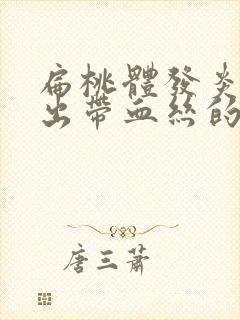 扁桃體發炎
出帶血絲的
唐三蕭